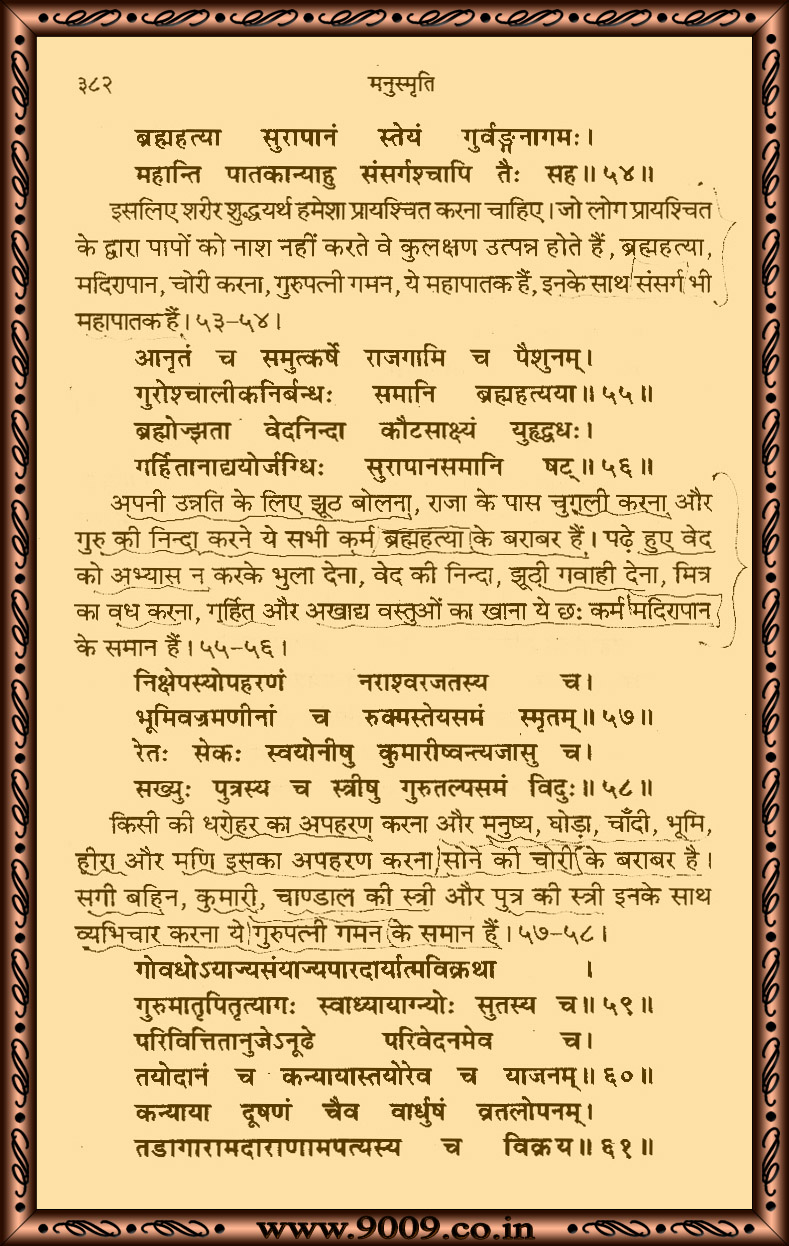 ३८२ मनुस्मृति
ब्रह्महत्या सुरापानं स्तेयं गुर्वङ्गनागमः।
महान्ति पातकान्याहु संसर्गश्चापि तैः सह॥५४॥
इसलिए शरीर शुद्धयर्थ हमेशा प्रायश्चित करना चाहिए। जो लोग प्रायश्चित
के द्वारा पापों को नाश नहीं करते वे कुलक्षण उत्पन्न होते हैं, ब्रह्महत्या,
मदिरापान, चोरी करना, गुरुपत्नी गमन, ये महापातक हैं, इनके साथ संसर्ग भी
महापातक हैं। ५३-५४।
आनृतं च समुत्कर्षे राजगामि च पैशुनम्।
गुरोश्चालीकनिर्बन्धः समानि ब्रह्महत्यया॥५५॥
ब्रह्मोज्झता वेदनिन्दा कौटसाक्ष्यं युहृद्वधः।
गर्हितानाद्ययोर्जग्धिः सुरापानसमानि षट्॥५६॥
अपनी उन्नति के लिए झूठ बोलना, राजा के पास चुगली करना और
गुरु की निन्दा करने ये सभी कर्म ब्रह्महत्या के बराबर हैं। पढ़े हुए वेद
को अभ्यास न करके भुला देना, वेद की निन्दा, झूठी गवाही देना, मित्र
का वध करना, गर्हित और अखाद्य वस्तुओं का खाना ये छः कर्म मदिरापान
के समान हैं। ५५-५६।
निक्षेपस्योपहरणं नराश्वरजतस्य च।
भूमिवज्रमणीनां च रुक्मस्तेयसमं स्मृतम्॥५७॥
रेतः सेकः स्वयोनीषु कुमारीष्वन्त्यजासु च।
सख्युः पुत्रस्य च स्त्रीषु गुरुतल्पसमं विदुः॥५८॥
किसी की धरोहर का अपहरण करना और मनुष्य, घोड़ा, चाँदी, भूमि,
हीरा और मणि इसका अपहरण करना सोने की चोरी के बराबर है।
सगी बहिन, कुमारी, चाण्डाल की स्त्री और पुत्र की स्त्री इनके साथ
व्यभिचार करना ये गुरुपत्नी गमन के समान हैं। ५७-५८।
गोवधोऽयाज्यसंयाज्यपारदार्यात्मविक्रथा ।
गुरुमातृपितृत्यागः स्वाध्यायाग्न्योः सुतस्य च॥५९॥
परिवित्तितानुजेऽनूढे परिवेदनमेव च।
तयोदानं च कन्यायास्तयोरेव च याजनम्॥६०॥
कन्याया दूषणं चैव वार्धुषं व्रतलोपनम्।
तडागारामदाराणामपत्यस्य च विक्रय॥६१॥
www.9009.co.in